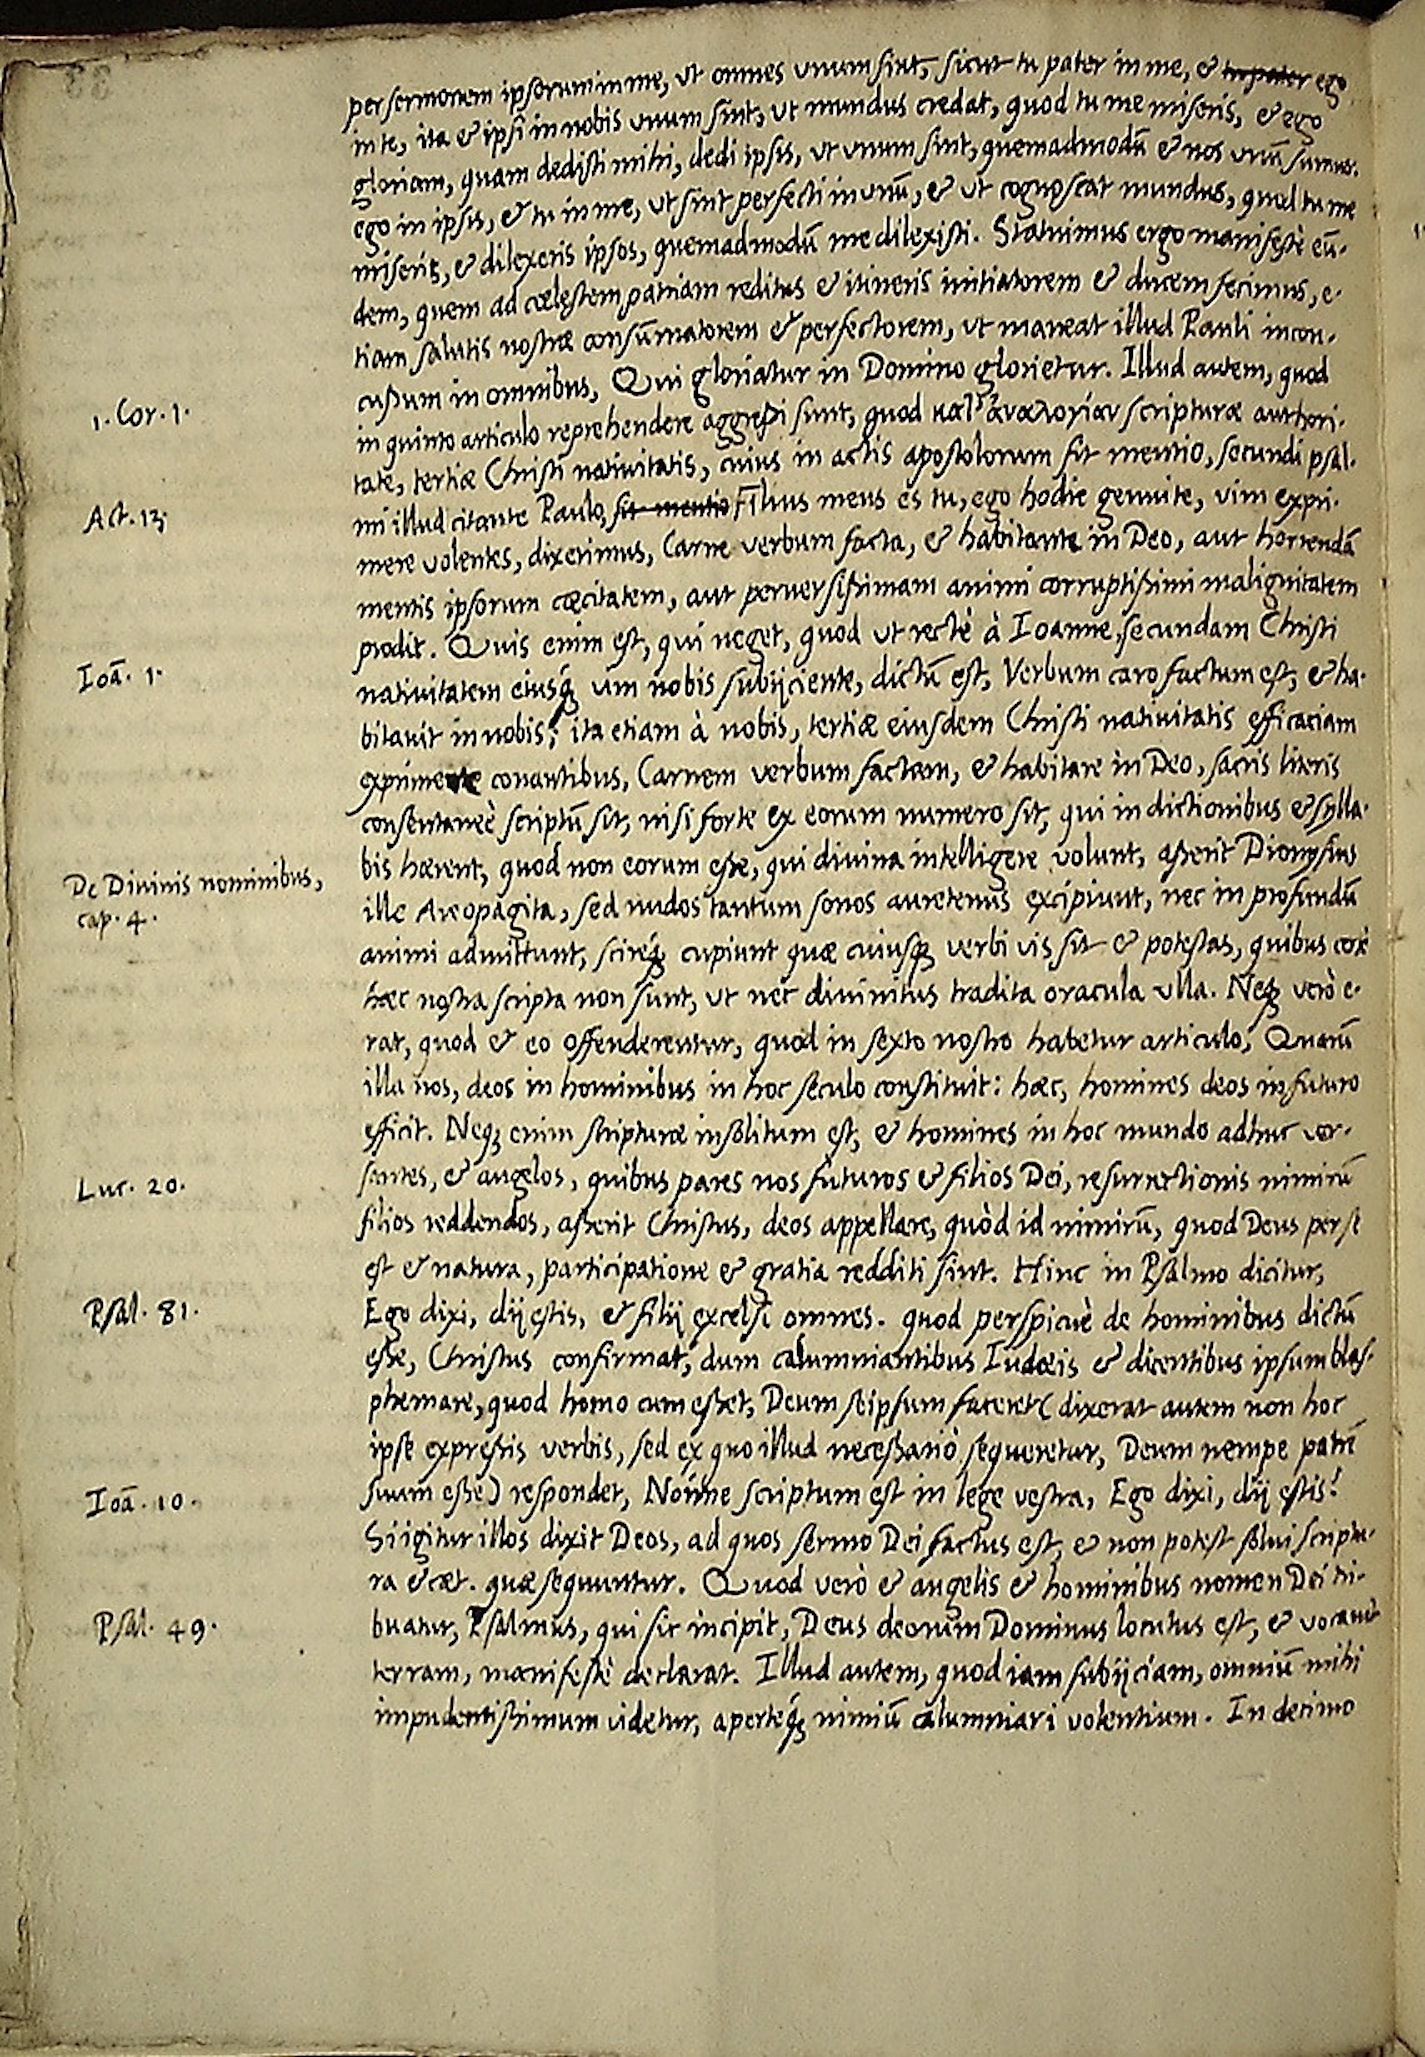 per sermonem ipsorum in me, ut omnes unum sint, sicut tu pater in me, & tu pater ego
in te, ita & ipsi in nobis unum sint, ut mundus credat, quod tu me miseris, & ego
gloriam, quam dedisti mihi, dedi ipsis, ut unum sint, quemadmodū & nos unū sumus.
ego in ipsis, & tu in me, ut sint perfecti in unū, & ut cognoscat mundus, quod tu me
miseris, & dilexeris ipsos, quemadmodū me dilexisti. Statuimus ergo manifestè eū-
dem, quem ad cœlestem patriam reditus & itineris initiatorem & ducem fecimus, e-
tiam salutis nostræ consūmatorem & perfectorem, ut maneat illud Pauli incon-
cussum in omnibus, Qui gloriatur in Domino glorietur. Illud autem, quod
1. Cor. 1.
in quinto articulo reprehendere aggressi sunt, quod κατ' ἀναλογίαν scripturæ authori-
tate, tertiæ Christi nativitatis, cuius in actis apostolorum fit mentio, secundi psal-
Act. 13
mi illud citante Paulo, fit mentio Filius meus es tu, ego hodie genui te, vim expri-
mere volentes, dixerimus, Carne verbum facta, & habitante in Deo, aut horrendā
mentis ipsorum cœcitatem, aut perversissimam animi corruptissimi malignitatem
prodit. Quis enim est, qui neget, quod ut rectè à Ioanne, secundam Christi
Ioā. 1.
nativitatem eiusq; vim nobis subijciente, dictū est, Verbum caro factum est, & ha-
bitavit in nobis; ita etiam à nobis, tertiæ eiusdem Christi nativitatis efficaciam
exprimere conantibus, Carnem verbum factam, & habitare in Deo, sacris literis
consentaneè scriptū sit, nisi forte ex eorum numero sit, qui in dictionibus & sylla-
bis hærent, quod non eorum esse, qui divina intelligere volunt, asserit Dionysius
De Divinis nominibus,
cap. 4.
ille Areopagita, sed nudos tantum sonos auretenus excipiunt, nec in profundū
animi admittunt, scireq; cupiunt quæ cuiusq; verbi vis sit & potestas, quibus certè
hæc nostra scripta non sunt, ut nec divinitus tradita oracula ulla. Neq; verò e-
rat, quod & eo offenderentur, quod in sexto nostro habetur articulo, Quarū
illa nos, deos in hominibus in hoc seculo constituit: hæc, homines deos in futuro
efficit. Neq; enim scripturæ insolitum est, & homines in hoc mundo adhuc ver-
Luc. 20.
santes, & angelos, quibus pares nos futuros & filios Dei, resurrectionis nimirū
filios reddendos, asserit Christus, deos appellare, quòd id nimirū, quod Deus per se
est & natura, participatione & gratia redditi sint. Hinc in Psalmo dicitur,
Psal. 81.
Ego dixi, dij estis, & filij excelsi omnes. quod perspicuè de hominibus dictū
esse, Christus confirmat, dum calumniantibus Iudæis & dicentibus ipsum blas-
phemare, quod homo cum esset, Deum seipsum faceret (dixerat autem non hoc
ipse expressis verbis, sed ex quo illud necessariò sequeretur, Deum nempe patrē
Ioā. 10.
suum esse) respondet, Nonne scriptum est in lege vestra, Ego dixi, dij estis?
Si igitur illos dixit Deos, ad quos sermo Dei factus est, & non potest solvi scriptu-
ra & cæt. quæ sequuntur. Quod verò & angelis & hominibus nomen Dei tri-
Psal. 49.
buatur, Psalmus, qui sic incipit, Deus deorum Dominus locutus est, & vocavit
terram, manifestè declarat. Illud autem, quod iam subijciam, omniū mihi
impudentissimum videtur, aperteq; nimiū calumniari volentium. In decimo